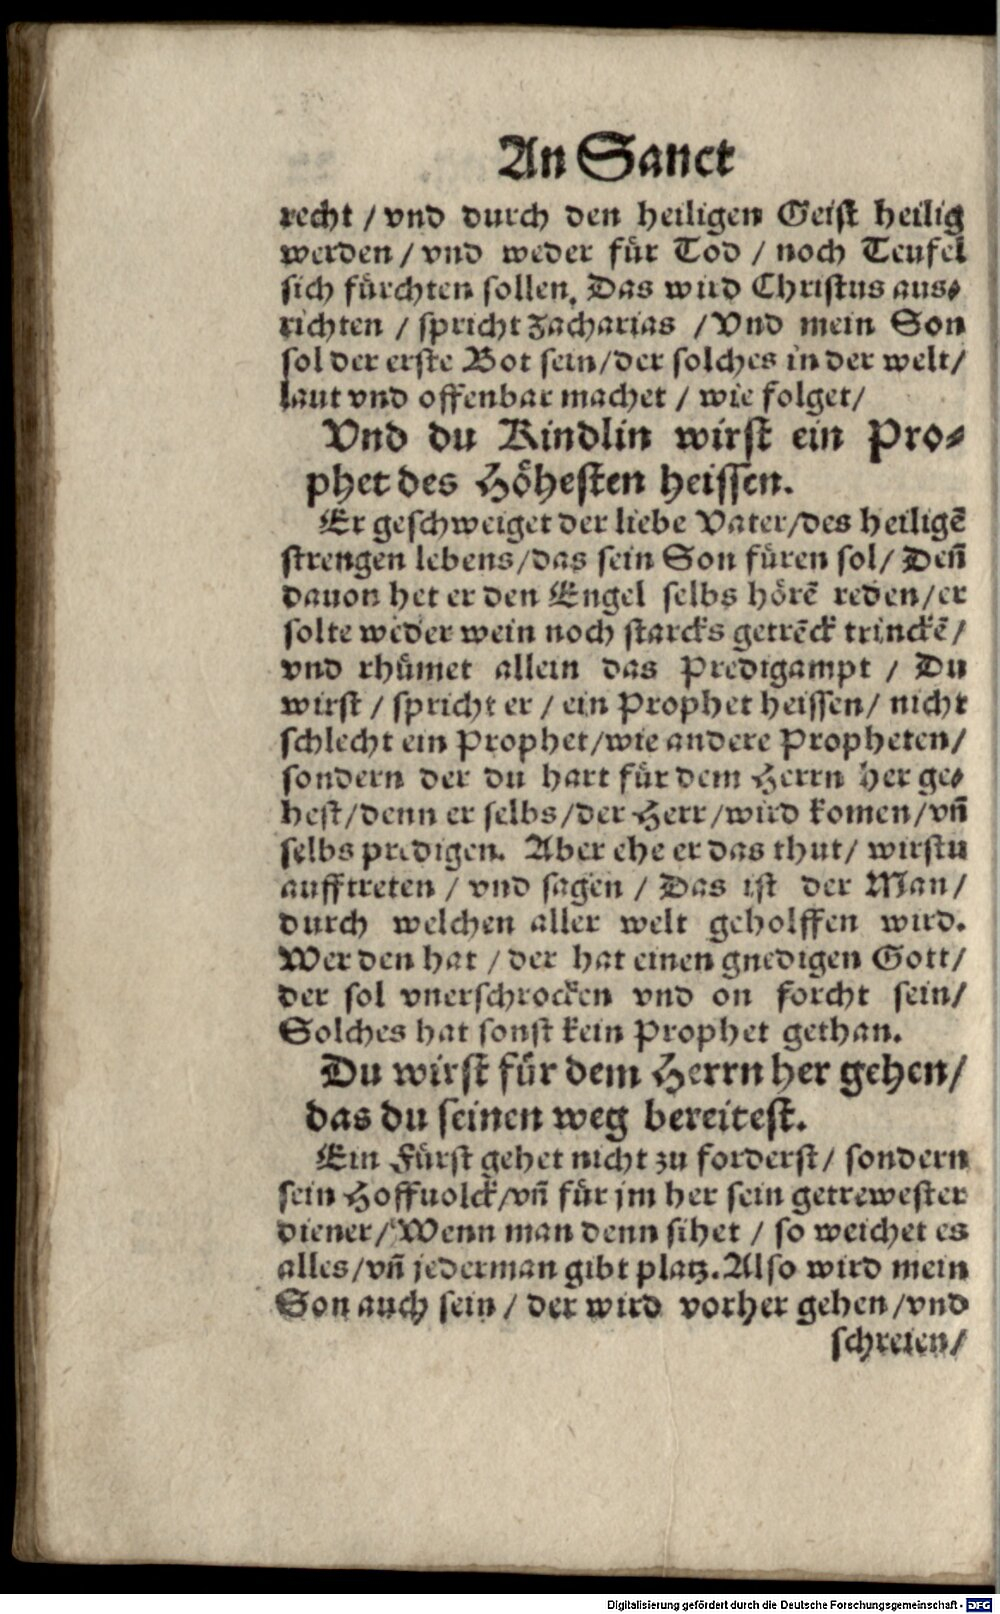 An Sanct
recht / vnd durch den heiligen Geist heilig
werden / vnd weder für Tod / noch Teufel
sich fürchten sollen. Das wird Christus aus⸗
richten / spricht Zacharias / Vnd mein Son
sol der erste Bot sein / der solches in der welt /
laut vnd offenbar machet / wie folget /
Vnd du Kindlin wirst ein Pro⸗
phet des Höhesten heissen.
Er geschweiget der liebe Vater / des heiligē
strengen lebens / das sein Son füren sol / Deñ
dauon het er den Engel selbs hörē reden / er
solte weder wein noch starcks getrēck trinckē /
vnd rhümet allein das Predigampt / Du
wirst / spricht er / ein Prophet heissen / nicht
schlecht ein Prophet / wie andere Propheten /
sondern der du hart für dem Herrn her ge⸗
hest / denn er selbs / der Herr / wird komen / vñ
selbs predigen. Aber ehe er das thut / wirstu
aufftreten / vnd sagen / Das ist der Man /
durch welchen aller welt geholffen wird.
Wer den hat / der hat einen gnedigen Gott /
der sol vnerschrocken vnd on forcht sein /
Solches hat sonst kein Prophet gethan.
Du wirst für dem Herrn her gehen /
das du seinen weg bereitest.
Ein Fürst gehet nicht zu forderst / sondern
sein Hoffuolck / vñ für jm her sein getrewester
diener / Wenn man denn sihet / so weichet es
alles / vñ jederman gibt platz. Also wird mein
Son auch sein / der wird vorher gehen / vnd
schreien /
Digitalisierung gefördert durch die Deutsche Forschungsgemeinschaft - DFG